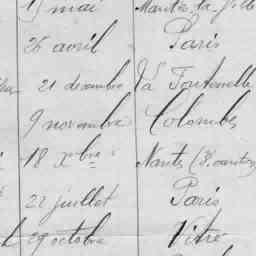 mai Mantes-la-Ville
26 avril Paris
21 décembre La Fontenelle
9 novembre Colombes
18 Xbre Nantes
22 juillet Paris
29 octobre Vitré